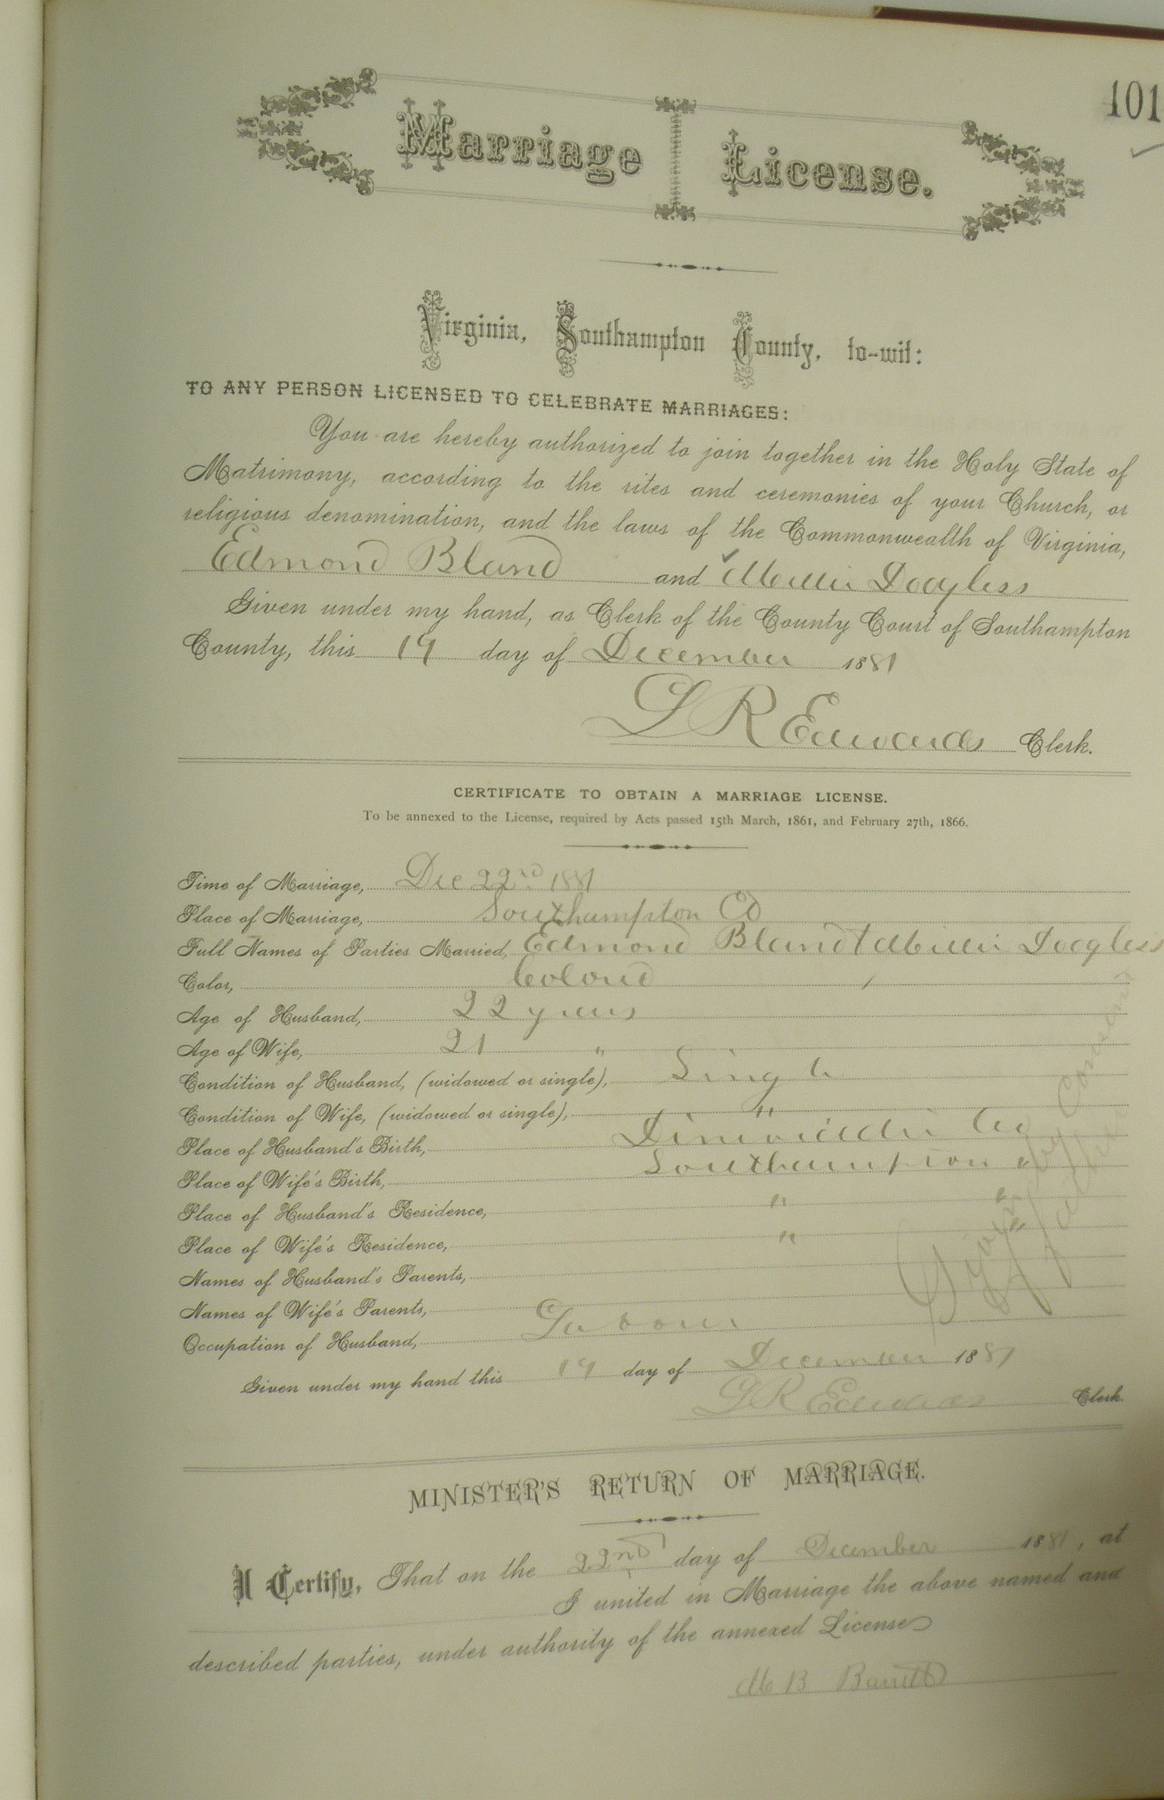 101
Marriage License.
Virginia, Southampton County, to-wit:
TO ANY PERSON LICENSED TO CELEBRATE MARRIAGES:
You are hereby authorized to join together in the Holy State of
Matrimony, according to the rites and ceremonies of your Church, or
religious denomination, and the laws of the Commonwealth of Virginia,
Edmond Bland and Millie Dogless
Given under my hand, as Clerk of the County Court of Southampton
County, this 19 day of December 1881
L R Edwards Clerk.
CERTIFICATE TO OBTAIN A MARRIAGE LICENSE.
To be annexed to the License, required by Acts passed 15th March, 1861, and February 27th, 1866.
Time of Marriage, Dec 22nd 1881
Place of Marriage, Southampton Co
Full Names of Parties Married, Edmond Bland & Millie Dogless
Color, Colored
Age of Husband, 22 years
Age of Wife, 21 "
Condition of Husband, (widowed or single), Single
Condition of Wife, (widowed or single), "
Place of Husband's Birth, Dinwiddie Co
Place of Wife's Birth, Southampton "
Place of Husband's Residence, " "
Place of Wife's Residence, " "
Names of Husband's Parents,
Names of Wife's Parents,
Occupation of Husband, Laborer
Given under my hand this 19 day of December 1881
L R Edwards Clerk.
Given by Consent
of father
MINISTER'S RETURN OF MARRIAGE.
I Certify, That on the 22nd day of December 1881, at
I united in Marriage the above named and
described parties, under authority of the annexed License
M B Barrett